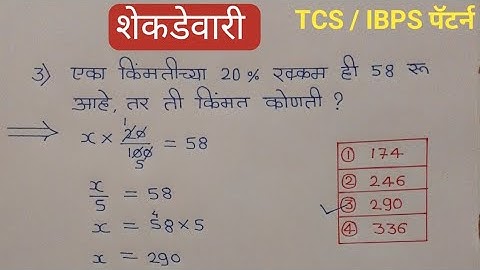 शेकडेवारी
TCS / IBPS पॅटर्न
3) एका किंमतीच्या 20% रक्कम ही 58 रू
आहे, तर ती किंमत कोणती ?
⇒ x × 20/100 = 58
1
5
x/5 = 58
x = 58 × 5
4
x = 290
① 174
② 246
✓ ③ 290
④ 336